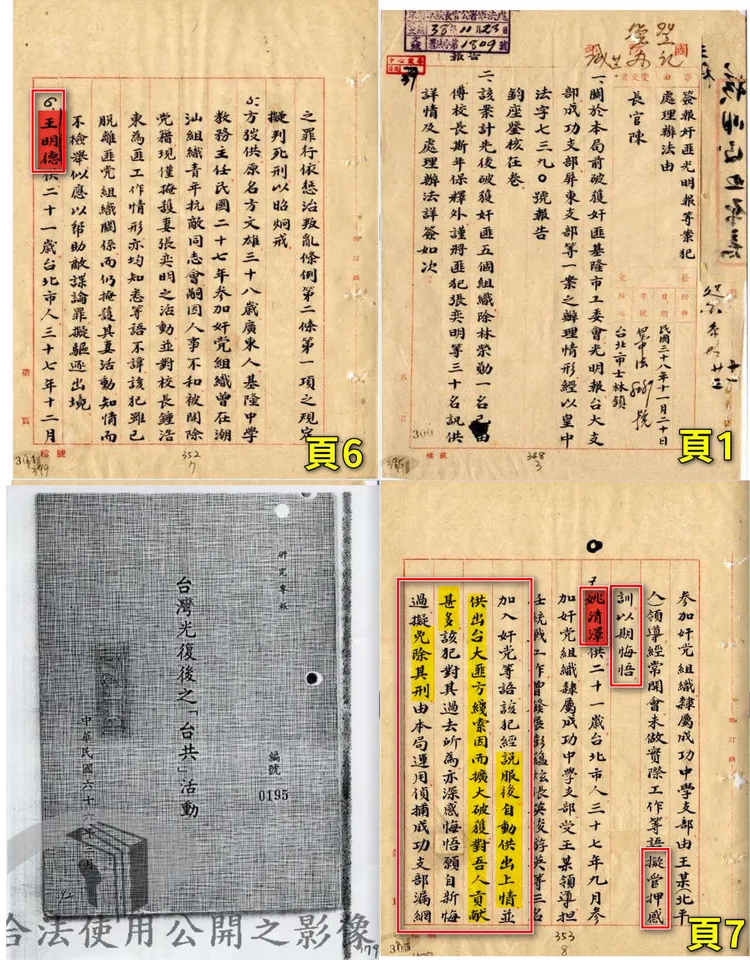 之罪行依懲治叛亂條例第二條第一項之規定
擬判死刑以昭炯戒
5.方弢供原名方文雄三十八歲廣東人基隆中學
教務主任民國二十七年參加奸党組織曾在潮
汕組織青年抗敵同志會嗣因人事不和被開除
党籍現僅掩護妻張奕明之活動並對校長鍾浩
東為匪工作情形亦均知悉等語不諱該犯雖已
脱離匪党組織關係而仍掩護其妻活動知情而
不檢舉似應以帮助敵諜論罪擬驅逐出境
6.王明德供二十一歲台北市人三十七年十二月
352
7
頁6
38年11月23日
1809號
報告
簽報奸匪光明報等案犯
處理辦法由
長官陳
民國三十八年十一月二十日
台北市士林鎮
一、關於本局前破獲奸匪基隆市工委會光明報台大支
部成功支部屏東支部等一案之辦理情形經以皇中
法字七三九0號報告
鈞座鑒核在卷
二、該案計先後破獲奸匪五個組織除林榮勳一名已由
傅校長斯年保釋外謹將匪犯張奕明等三十名訊供
詳情及處理辦法詳簽如次：
300
348
3
頁1
研究專報
台灣光復後之「台共」活動
編號
0195
中華民國六十六年二月
合法使用公開之影像
參加奸党組織隸屬成功中學支部由王某北平
人)領導經常開會未做實際工作等語擬管押感
訓以期悔悟
7.姚清澤供二十一歲台北市人三十七年九月參
加奸党組織隸屬成功中學支部受王某領導担
任統戰工作曾發展彭蘊炫張英俊薛英等三名
加入奸党等語該犯經說服後自動供出上情並
供出台大匪方綫索因而擴大破獲對吾人貢献
甚多該犯對其過去所為亦深感悔悟願自新悔
過擬免除其刑由本局運用偵捕成功支部漏網
353
8
頁7